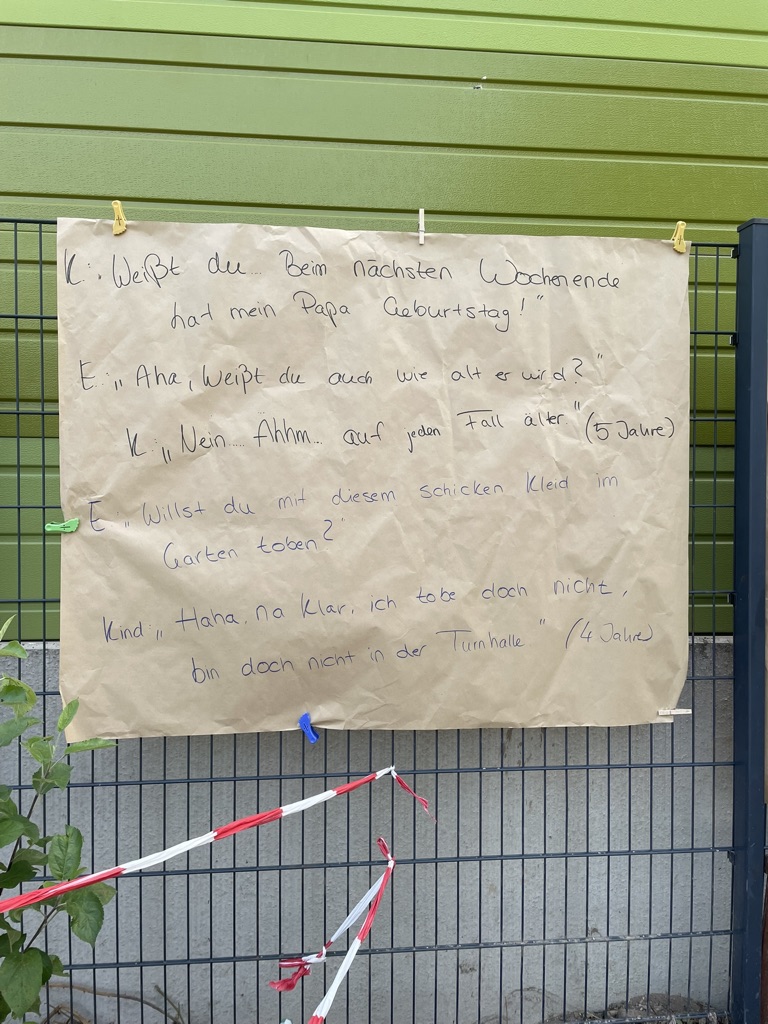 K: „Weißt du... Beim nächsten Wochenende
hat mein Papa Geburtstag!"
E: „Aha, Weißt du auch wie alt er wird?"
K: „Nein.... Ähhm... auf jeden Fall älter." (5 Jahre)
E: „Willst du mit diesem schicken Kleid im
Garten toben?"
Kind: „Haha, na klar, ich tobe doch nicht,
bin doch nicht in der Turnhalle" (4 Jahre)